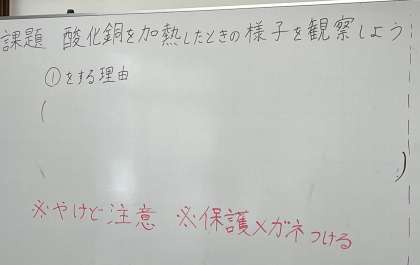 課題 酸化銅を加熱したときの様子を観察しよう
①をする理由
(
)
※やけど注意 ※保護メガネつける